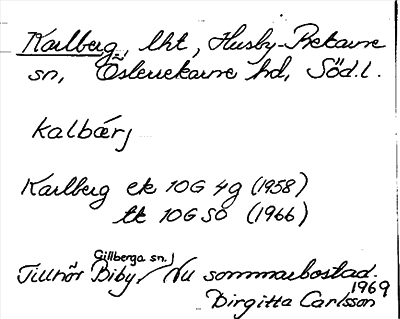 Karlberg, lht, Husby-Rekarne
sn, Österrekarne hd, Söd.l.
kalbárj
Karlberg ek 10G 4g (1958)
tk 10G SO (1966)
Gillberga sn.
Tillhör Biby. Nu sommarbostad.
1969
Birgitta Carlsson